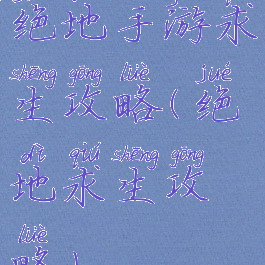 绝地手游求
shēng gōng lüè jué
生攻略(绝
dì qiú shēng gōng
地求生攻
lüè
略)